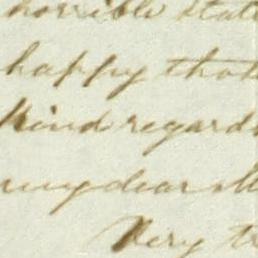 horrible stat
happy that
Kind regards
my dear M
Very tr